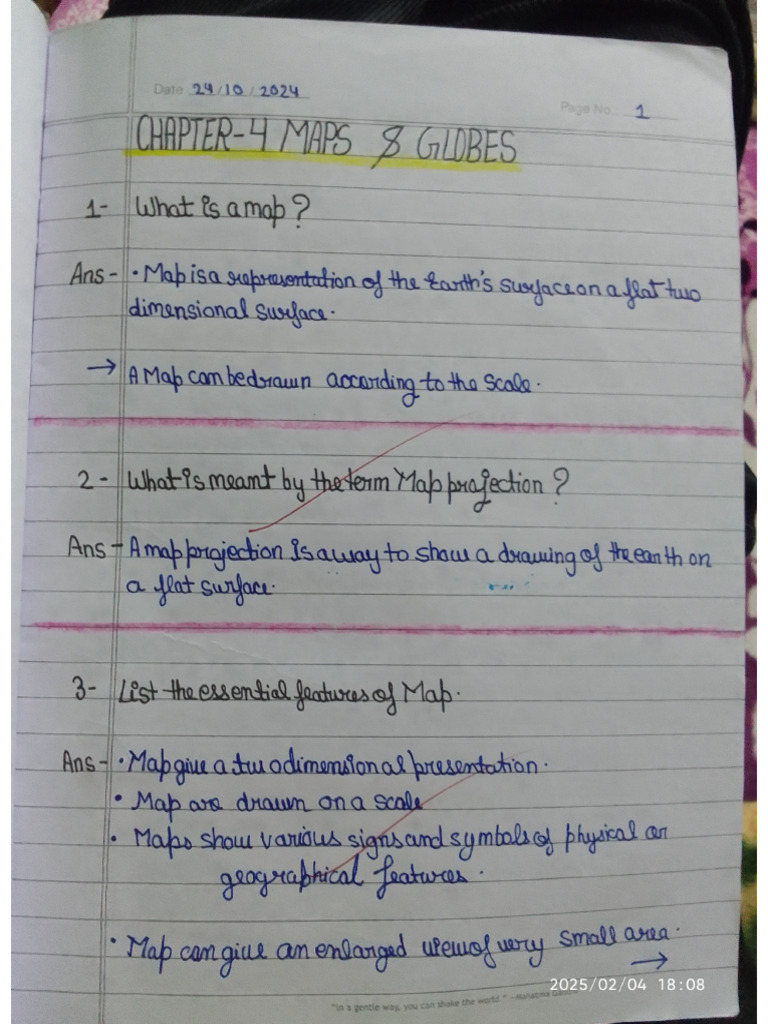 Date 24/10/2024
Page No.: 1
CHAPTER-4 MAPS & GLOBES
1- What is a map?
Ans- • Map is a representation of the Earth's surface on a flat two
dimensional surface.
→ A Map can be drawn according to the scale.
2- What is meant by the term Map projection?
Ans- A map projection is a way to show a drawing of the earth on
a flat surface.
3- List the essential features of Map.
Ans- • Map give a two dimensional presentation.
• Map are drawn on a scale
• Maps show various signs and symbols of physical or
geographical features.
• Map can give an enlarged view of very small area.
→
2025/02/04 18:08
"In a gentle way, you can shake the world." -Mahatma